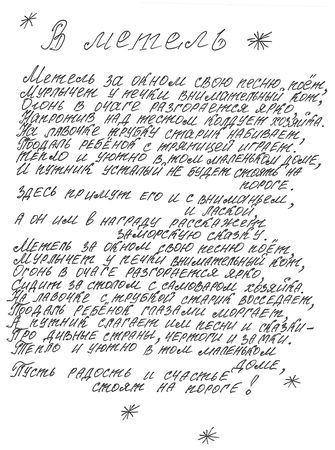 В метель
Метель за окном свою песню поёт,
Мурлычет у печки внимательный кот,
Огонь в очаге разгорается ярко,
Напротив над тестом колдует хозяйка.
На лавочке трубку старик набивает,
Поодаль ребёнок с тряпицей играет.
Тепло и уютно в том маленьком доме,
И путник усталый не будет стоять на
пороге.
Здесь примут его и с вниманьем,
и лаской,
А он им в награду расскажет
заморскую сказку.
Метель за окном свою песню поёт,
Мурлычет у печки внимательный кот,
Огонь в очаге разгорается ярко,
Сидит за столом с самоваром хозяйка.
На лавочке с трубкой старик восседает,
Поодаль ребёнок глазами моргает,
А путник слагает им песни и сказки-
Про дивные страны, чертоги и замки.
Тепло и уютно в том маленьком
доме,
Пусть радость и счастье
стоят на пороге!